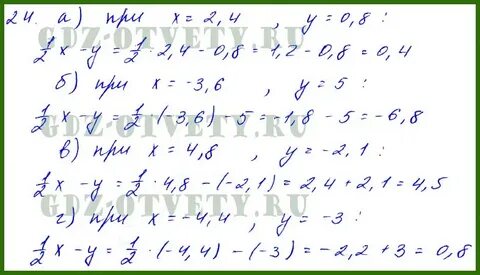 24. а) при x = 2,4 , y = 0,8 :
1/2 x - y = 1/2 · 2,4 - 0,8 = 1,2 - 0,8 = 0,4
б) при x = -3,6 , y = 5 :
1/2 x - y = 1/2 · (-3,6) - 5 = -1,8 - 5 = -6,8
в) при x = 4,8 , y = -2,1 :
1/2 x - y = 1/2 · 4,8 - (-2,1) = 2,4 + 2,1 = 4,5
г) при x = -4,4 , y = -3 :
1/2 x - y = 1/2 · (-4,4) - (-3) = -2,2 + 3 = 0,8
GDZ-OTVETY.RU
GDZ-OTVETY.RU
GDZ-OTVETY.RU